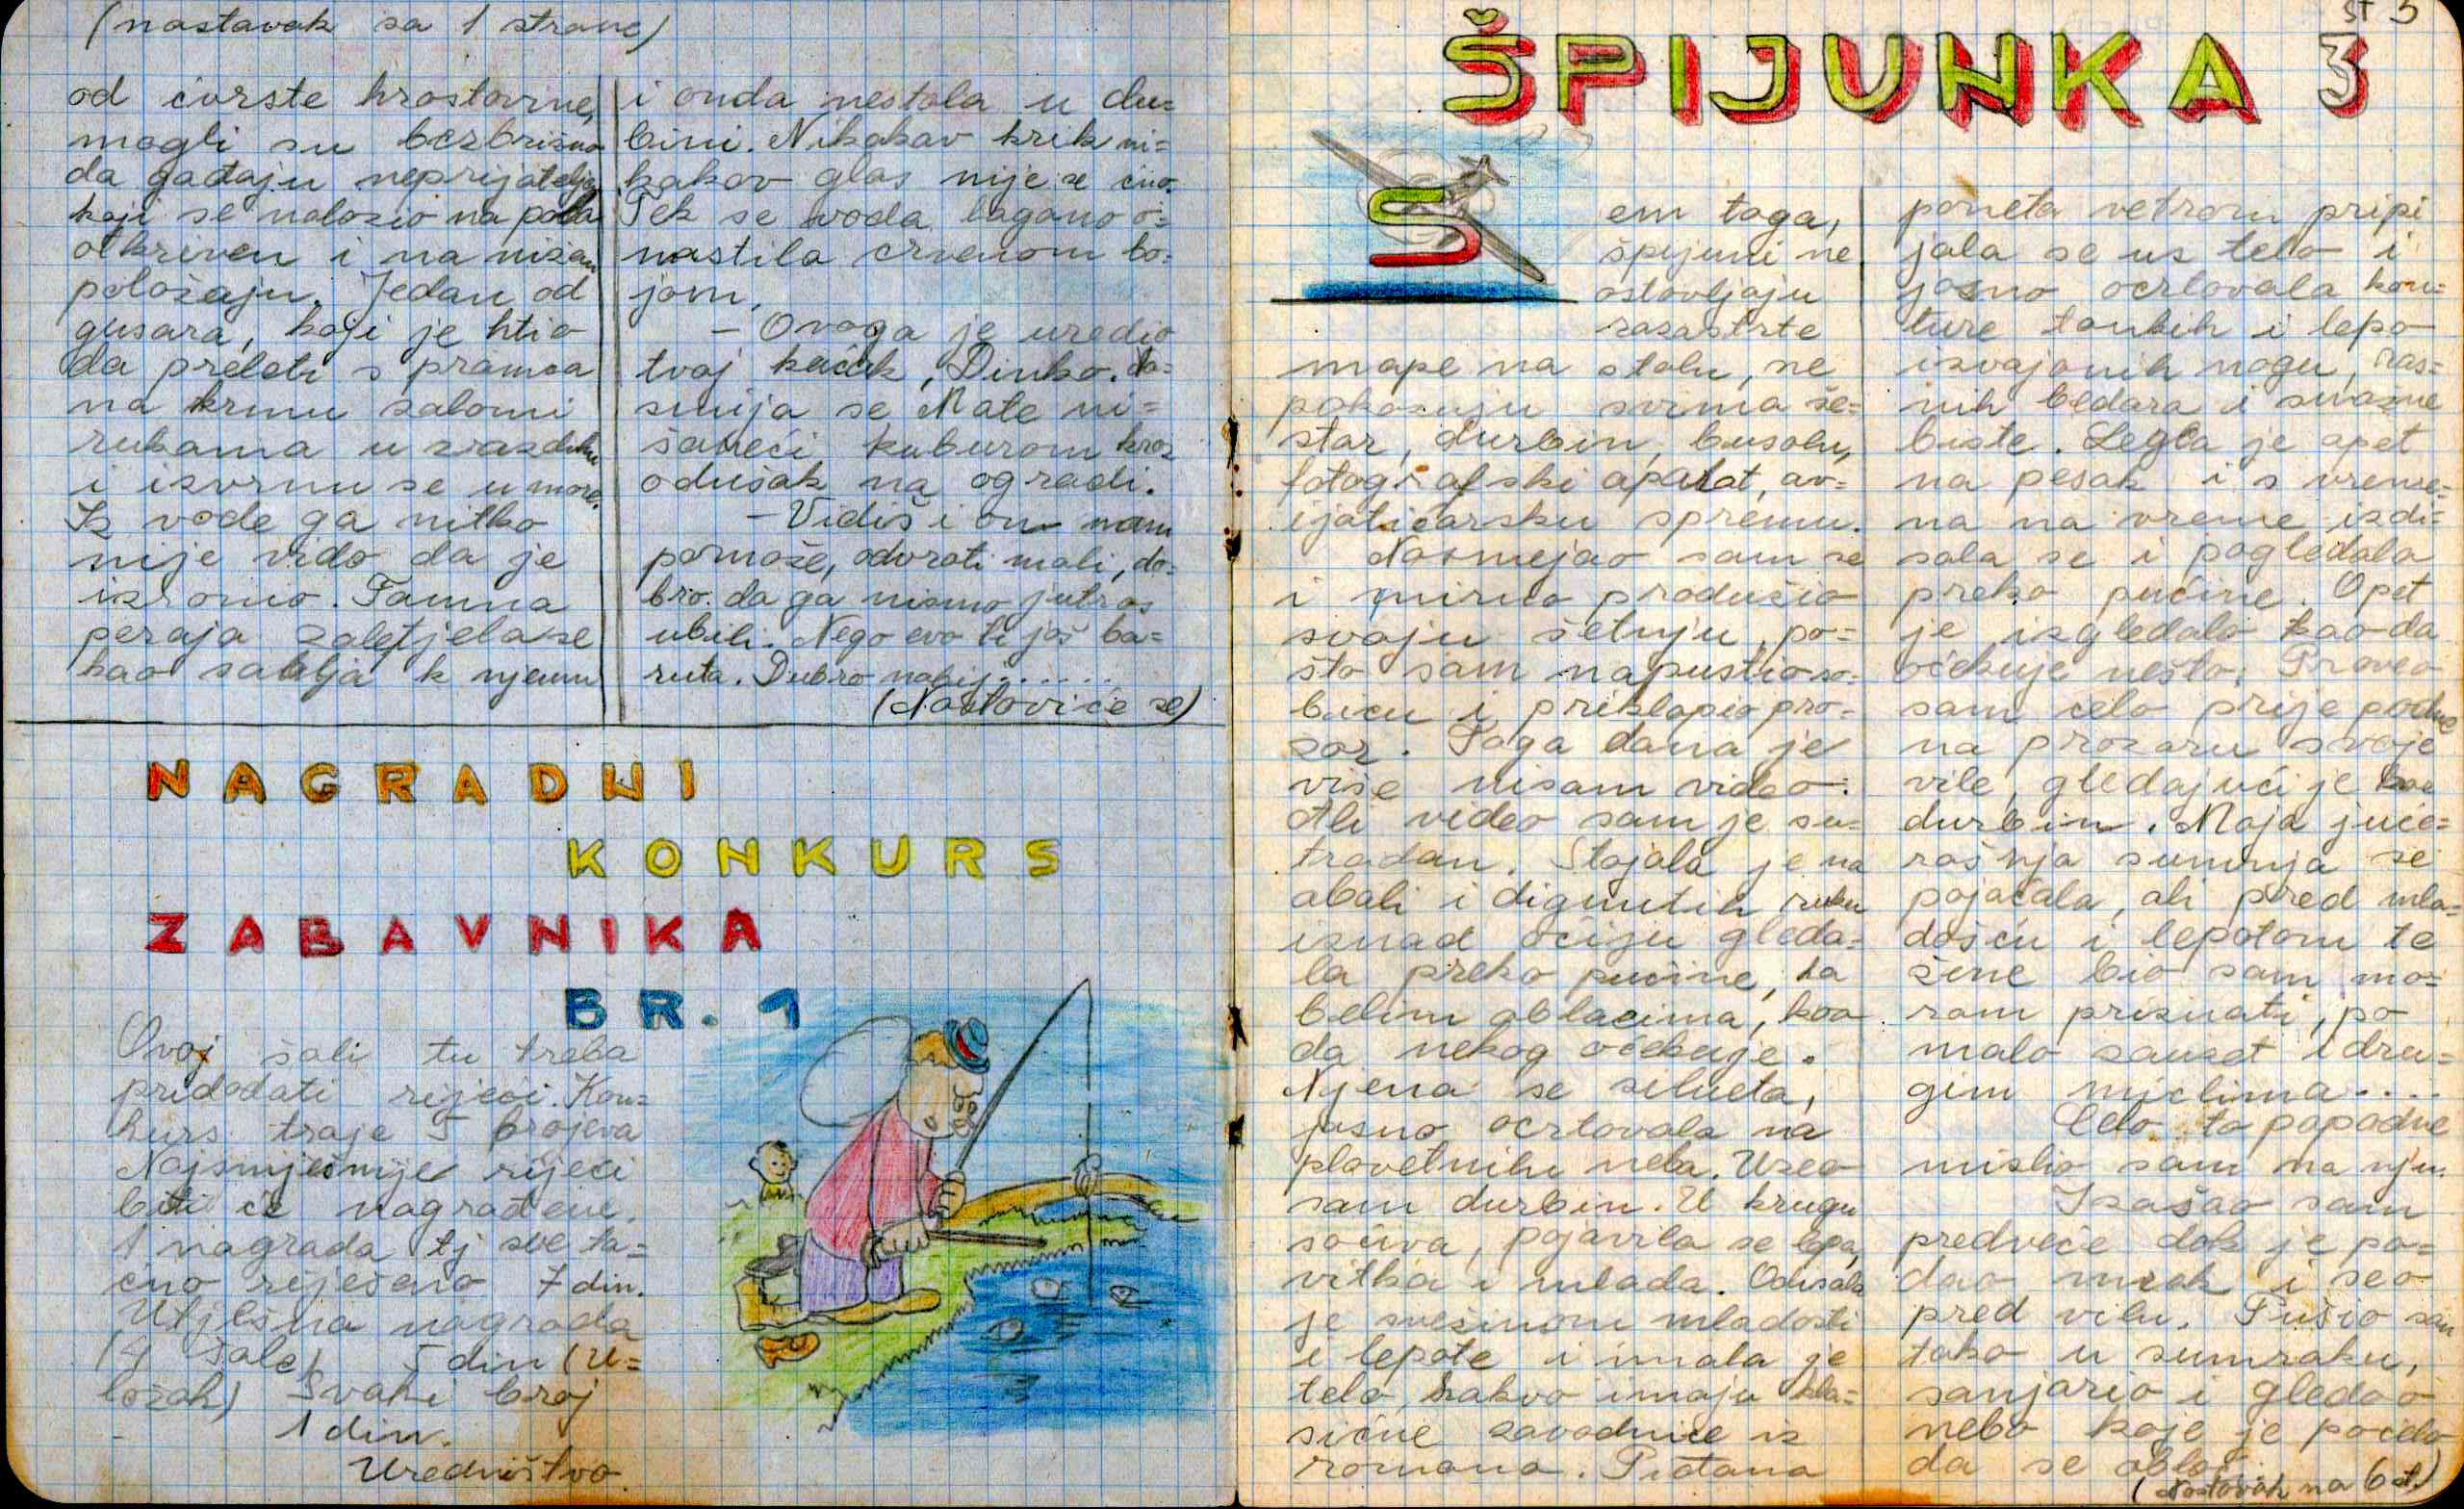 (nastavak sa 1 strane)
od čvrste hrastovine,
mogli su bezbrižno
da gađaju neprijatelja
koji se nalazio na pola
otkriven i na nižem
položaju. Jedan od
gusara, koji je htio
da preleti s pramca
na krmu zalomi
rukama u vazduhu
i izvrnu se u more.
Iz vode ga nitko
nije vido da je
izronio. Tamna
peraja zaletjela se
kao sablja k njemu
i onda nestala u du=
bini. Nikakav krik ni=
kakav glas nije se čuo.
Tek se voda lagano o=
mastila crvenom bo=
jom.
- Ovoga je uredio
tvoj kučak, Dinko. na=
smija se Mate ni=
šaneći kuburom kroz
odušak na ogradi.
- Vidiš i on nam
pomože, odvrati mali, do=
bro. da ga nismo jutros
ubili. Nego evo ti još ba=
ruta. Dubro nabij......
(Nastaviće se)
NAGRADNI
KONKURS
ZABAVNIKA
BR. 1
Ovoj šali tu treba
pridodati riječi. Kon=
kurs traje 5 brojeva
Najsmješnije riječi
biti će nagrađene.
1 nagrada tj sve ta=
čno riješeno 7 din.
Utješna nagrada
(4 šale) 5 din (u=
ložak) Svaki broj
1 din.
Uredništvo
ST 3
ŠPIJUNKA 3
S
em toga,
špijuni ne
ostavljaju
razastrte
mape na stolu, ne
pokazuju svima še=
star, durbin, busolu,
fotografski aparat, av=
ijatičarsku spremu.
Nasmejao sam se
i mirno produžio
svoju šetnju, po=
što sam napustio so=
bicu i priklopio pro=
zor. Toga dana je
više nisam video.
Ali video sam je su=
tradan. Stajala je na
obali i dignutih ruku
iznad očiju gleda=
la preko pučine, ka
belim oblacima, kao
da nekog očekuje.
Njena se silueta,
jasno ocrtavala na
plavetnilu neba. Uzeo
sam durbin. U krugu
sočiva, pojavila se lepa,
vitka i mlada. Odisala
je svežinom mladosti
i lepote i imala je
telo, kakvo imaju kla=
sične zavodnice iz
romana. Pidžama
poneta vetrom pripi
jala se uz telo i
jasno ocrtavala kon=
ture tankih i lepo
izvajanih nogu, ras=
nih bedara i snažne
biste. Legla je opet
na pesak i s vreme=
na na vreme izdi=
zala se i pogledala
preko pučine. Opet
je izgledalo kao da
očekuje nešto. Proveo
sam celo prije podne
na prozoru svoje
vile, gledajući je kroz
durbin. Moja juče=
rašnja sumnja se
pojačala, ali pred mla=
došću i lepotom te
žene bio sam mo=
ram priznati, po
malo zauzet i dru=
gim mislima....
Celo to popodne
mislio sam na nju.
Izašao sam
predveče dok je pa=
dao mrak i seo
pred vilu. Pušio sam
tako u sumraku,
sanjario i gledao
nebo koje je počelo
da se
(Nastavak na 6 st.)